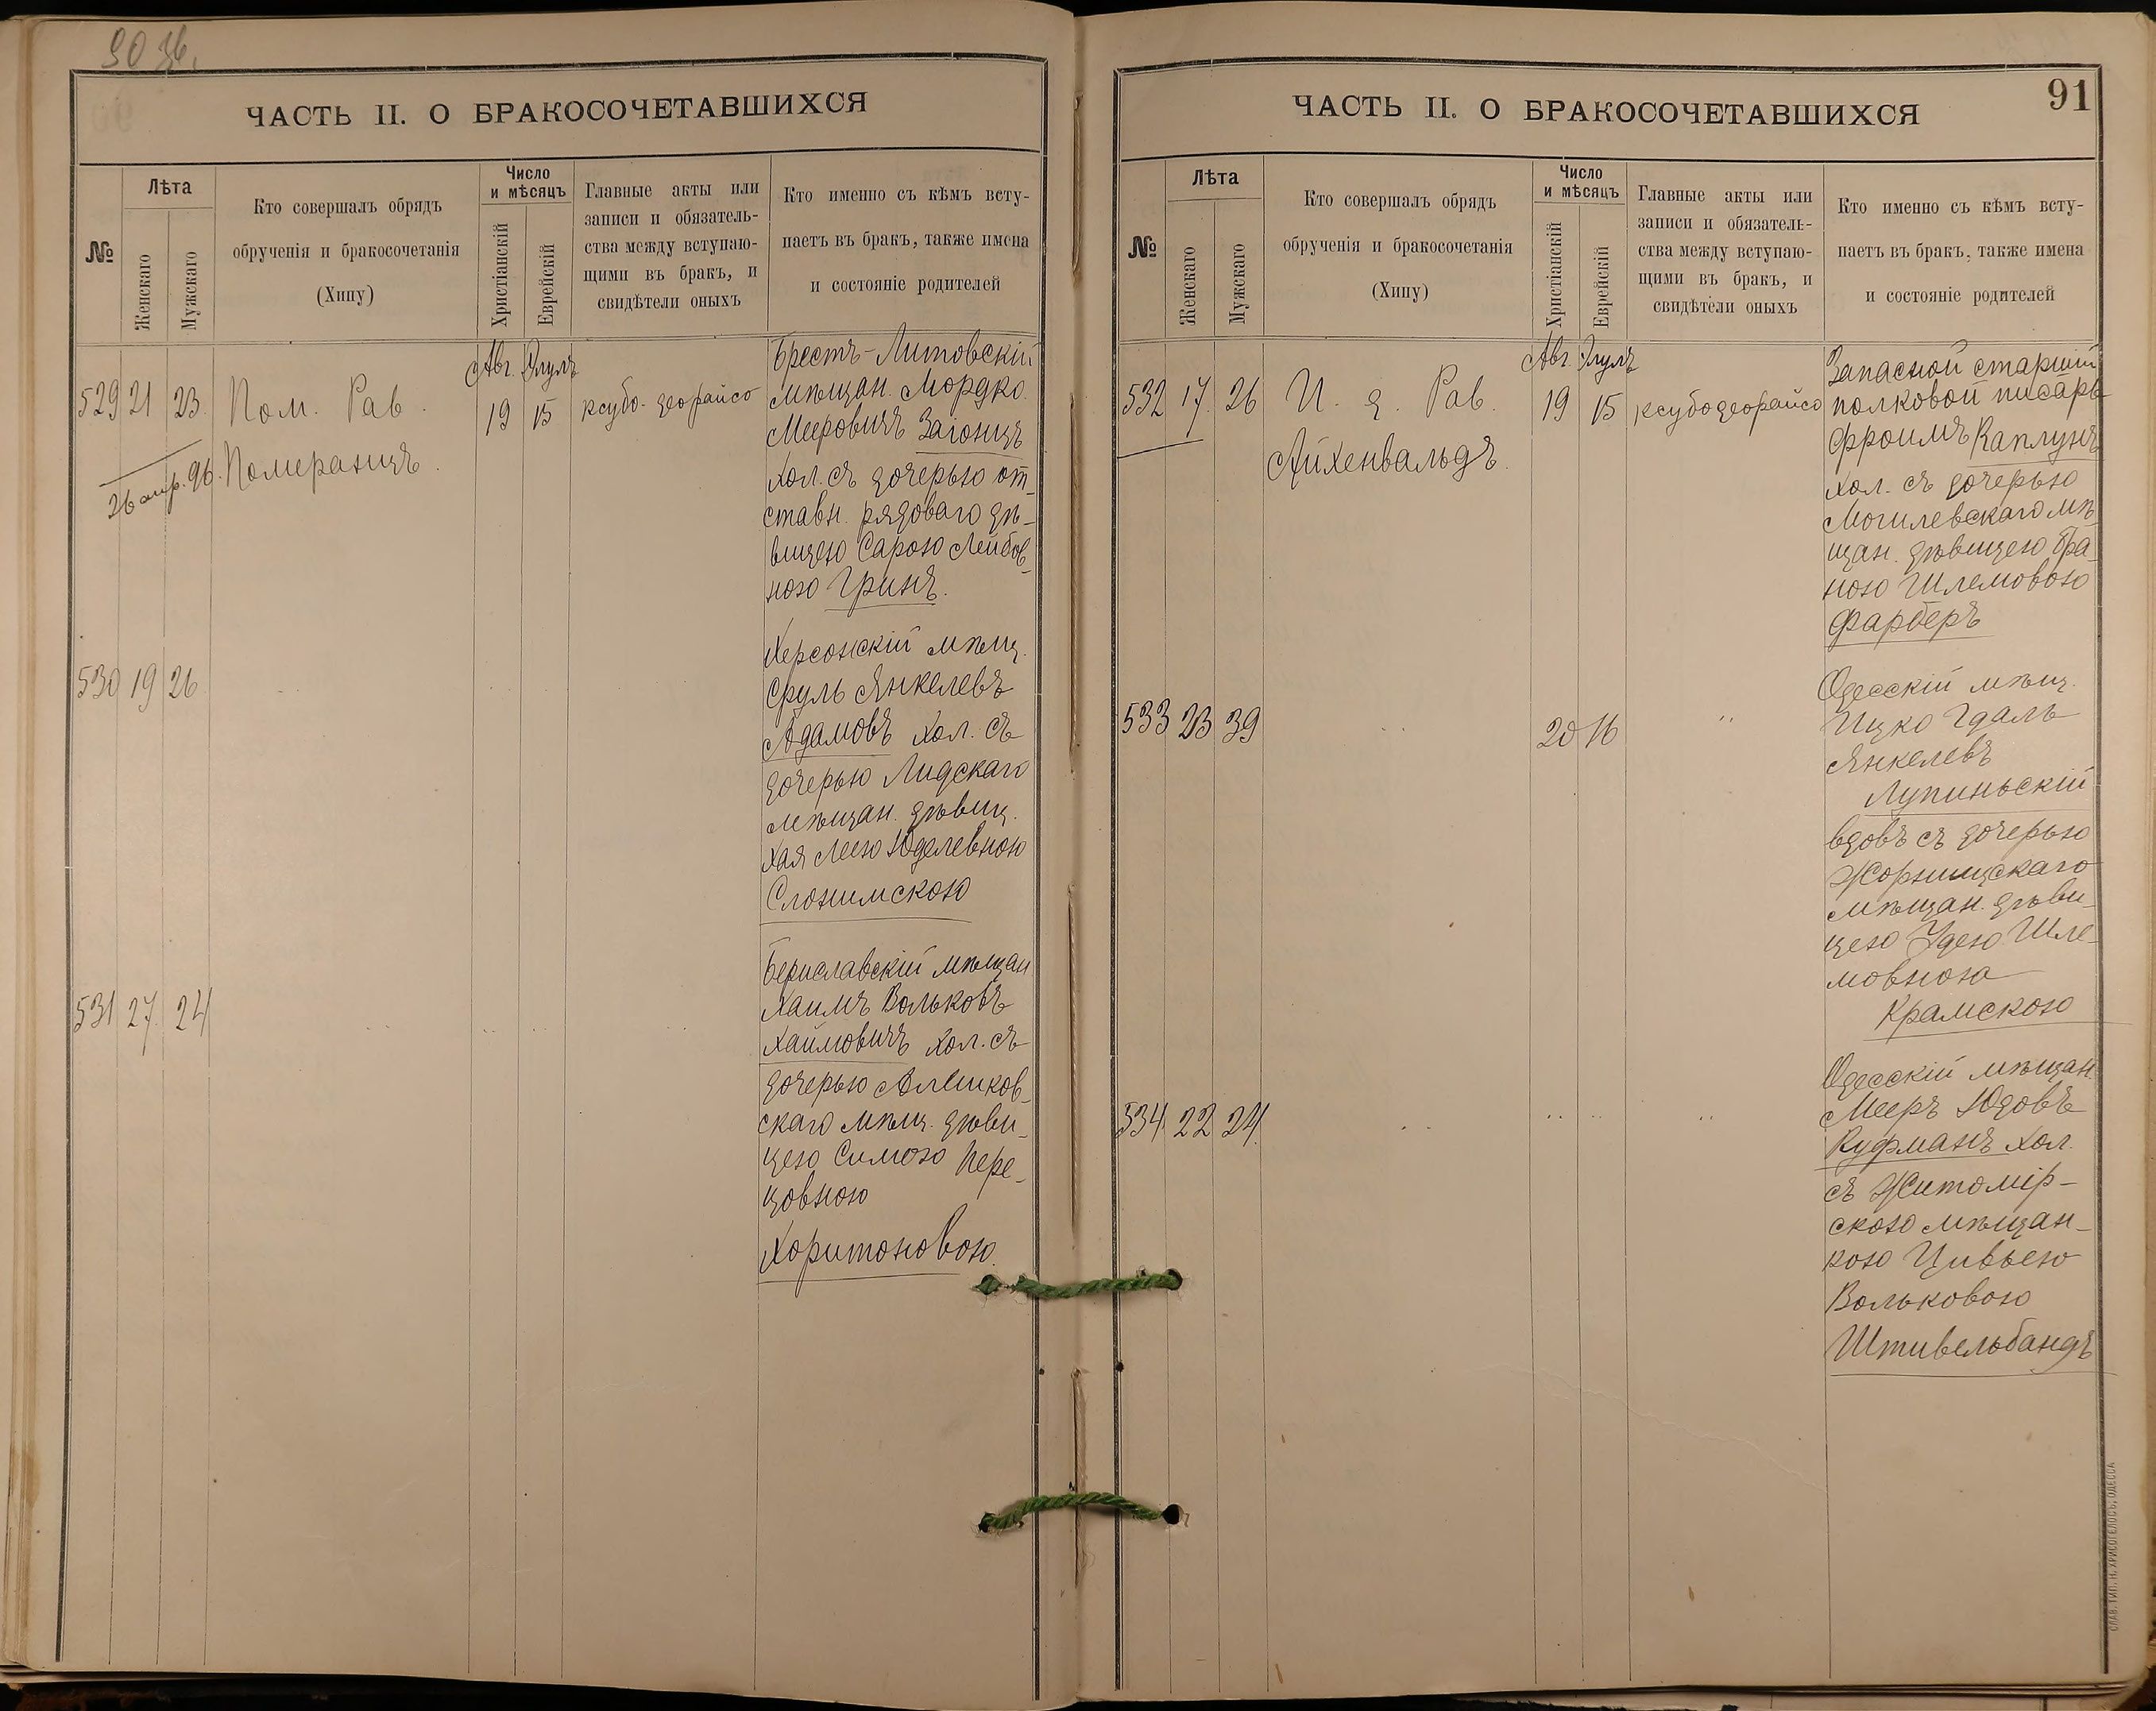 90 зв.
ЧАСТЬ II. О БРАКОСОЧЕТАВШИХСЯ
№
Лѣта
Женскаго
Мужскаго
Кто совершалъ обрядъ
обрученія и бракосочетанія
(Хипу)
Число
и мѣсяцъ
Христіанскій
Еврейскій
Главные акты или
записи и обязатель-
ства между вступаю-
щими въ бракъ, и
свидѣтели оныхъ
Кто именно съ кѣмъ всту-
паетъ въ бракъ, также имена
и состояніе родителей
Авг. Элулъ
529 21 23 Пом. Рав. 19 15 ксубо-деорайсо
26 апр. 96. Померанцъ.
Брестъ-Литовскій
мѣщан. Мордко
Мееровичъ Загонцъ
хол. съ дочерью от-
ставн. рядоваго дѣ-
вицею Сарою Лейбов-
ною Гринъ.
530 19 26
Херсонскій мѣщ.
Сруль Янкелевъ
Адамовъ хол. съ
дочерью Лидскаго
мѣщан. дѣвиц.
Хая Леею Юделевною
Слонимскою
531 27 24
Бериславскій мѣщан
Хаимъ Вольковъ
Хаимовичъ хол. съ
дочерью Алешков-
скаго мѣщ. дѣви-
цею Симою Пере-
цовною
Харитоновою.
ЧАСТЬ II. О БРАКОСОЧЕТАВШИХСЯ
91
№
Лѣта
Женскаго
Мужскаго
Кто совершалъ обрядъ
обрученія и бракосочетанія
(Хипу)
Число
и мѣсяцъ
Христіанскій
Еврейскій
Главные акты или
записи и обязатель-
ства между вступаю-
щими въ бракъ, и
свидѣтели оныхъ
Кто именно съ кѣмъ всту-
паетъ въ бракъ, также имена
и состояніе родителей
Авг. Элулъ
532 17 26 И. д. Рав. 19 15 ксубодеорайсо
Айхенвальдъ.
Запасной старшій
полковой писарь
Фроимъ Каплунъ
хол. съ дочерью
Могилевскаго мѣ-
щан. дѣвицею Бра-
ною Шлемовою
Фарберъ
533 23 39 20 16
Одесскій мѣщ.
Ицко Гдаль
Янкелевъ
Лупиньскій
вдовъ съ дочерью
Жорнищскаго
мѣщан. дѣви-
цею Удею Шле-
мовною
Крамскою
534 22 24
Одесскій мѣщан.
Мееръ Юдовъ
Куфманъ хол.
съ Житомір-
скою мѣщан-
кою Цивьею
Вольковою
Штивельбандъ
СЛАВ. ТИП. Н. ХРИСОГЕЛОСЪ, ОДЕССА